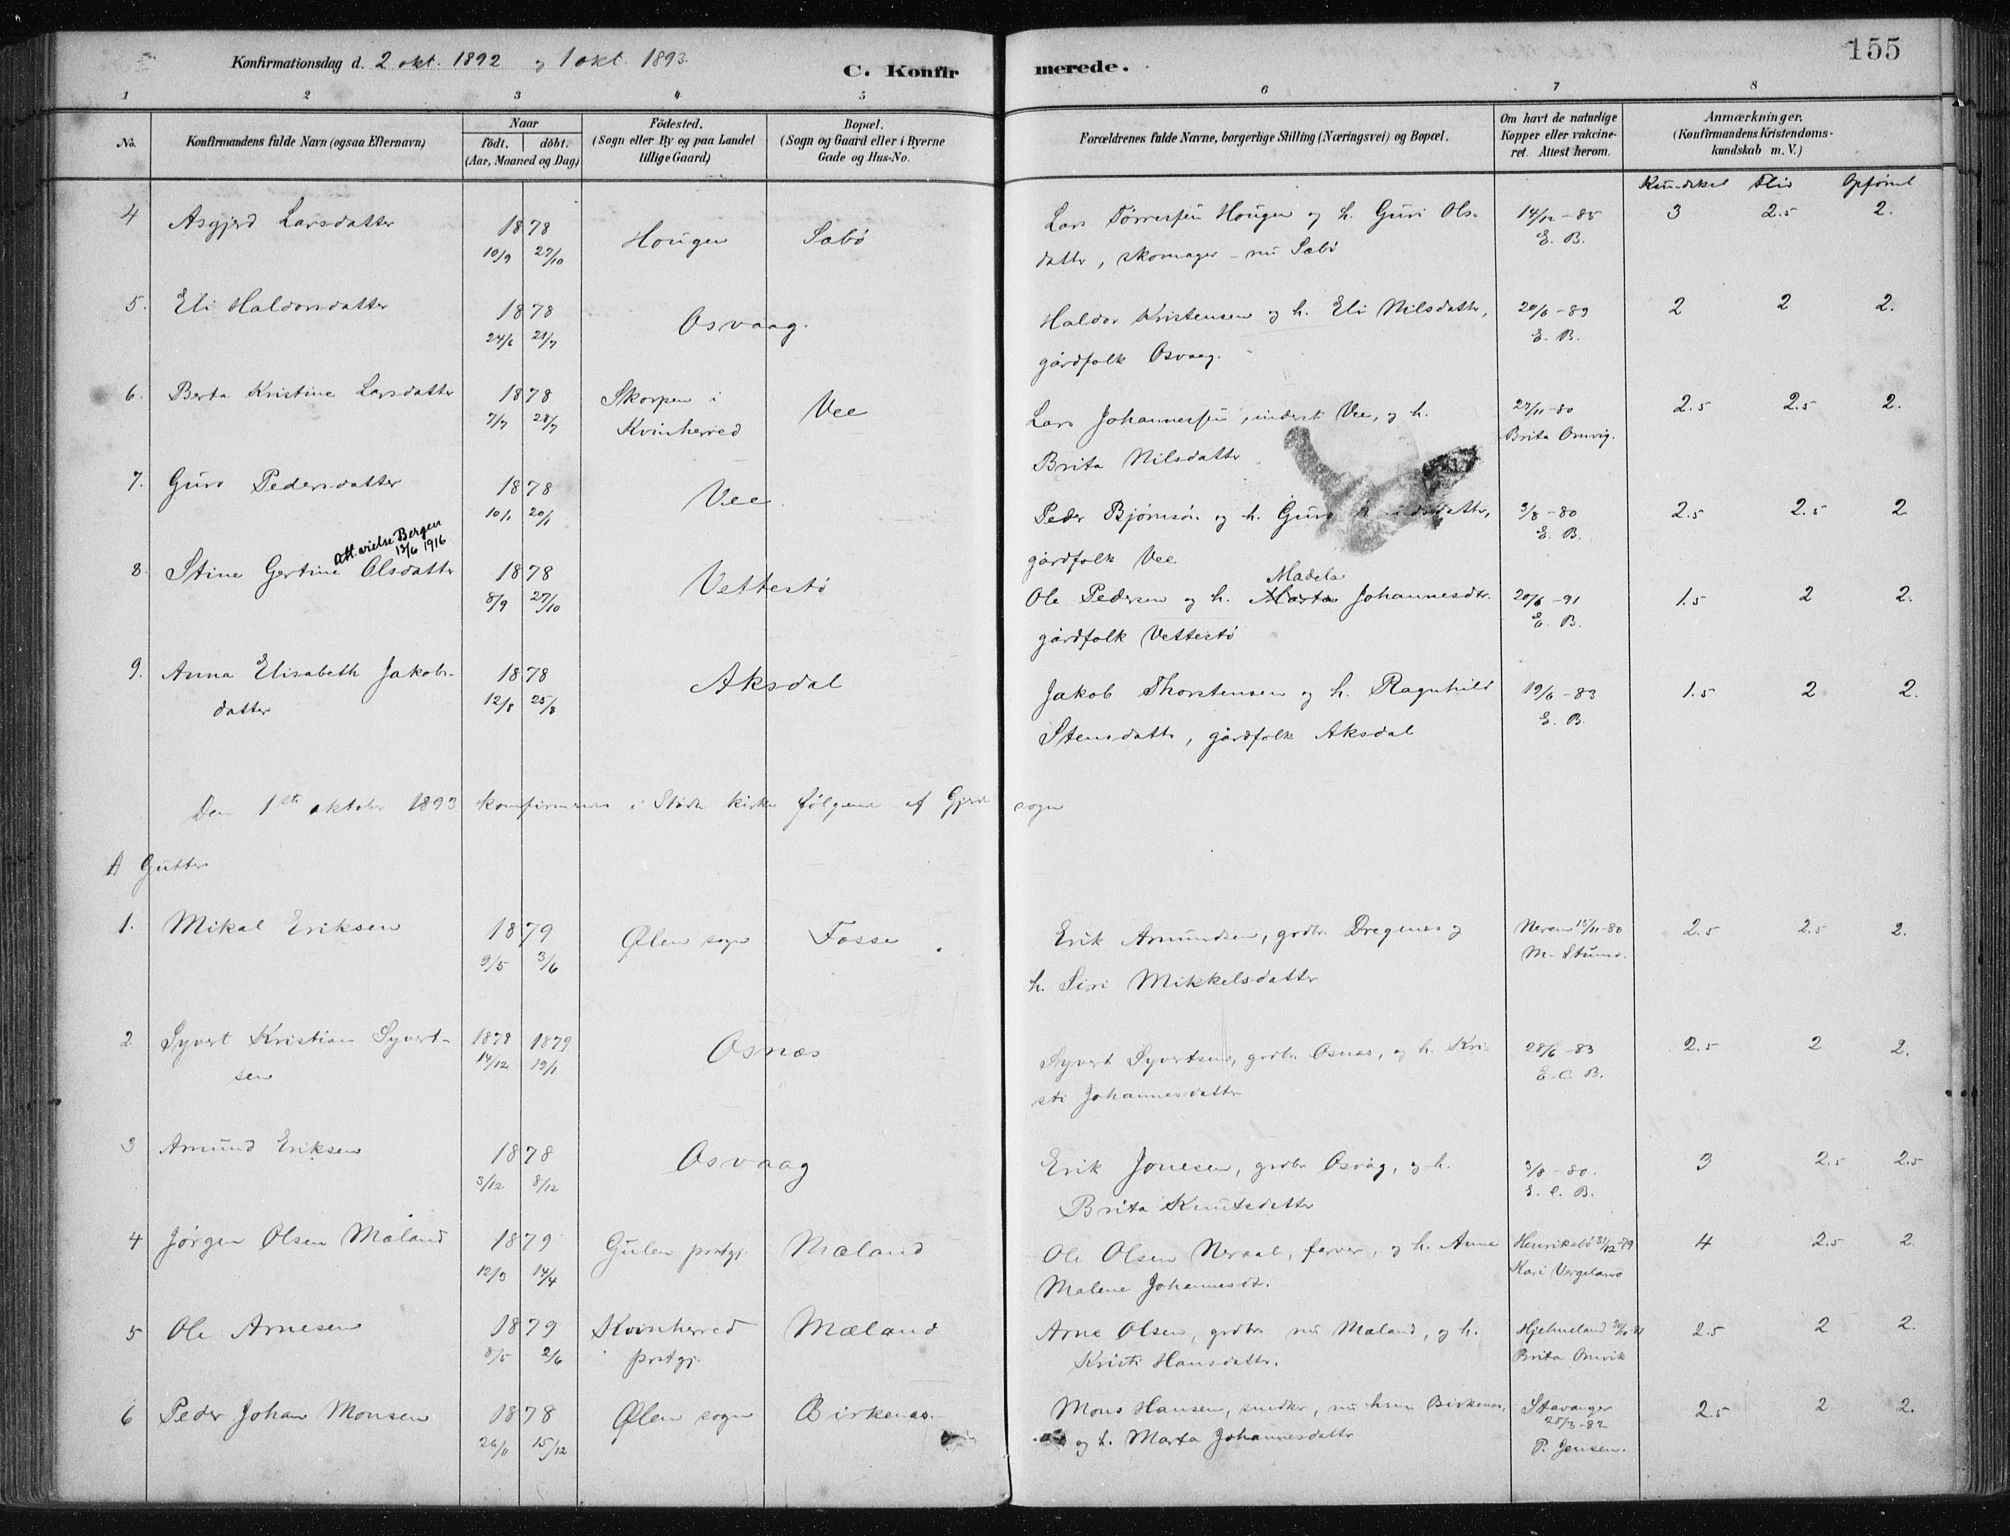 155
Konfirmationsdag d. 2 okt. 1892 og 1 okt. 1893.
C. Konfirmerede.
1 2 3 4 5 6 7 8
No.
Konfirmandens fulde Navn (ogsaa Efternavn)
Naar
födt. döbt.
(Aar, Maaned og Dag)
Födested.
(Sogn eller By og paa Landet
tillige Gaard)
Bopæl.
(Sogn og Gaard eller i Byerne
Gade og Hus-No.
Forældrenes fulde Navne, borgerlige Stilling (Næringsvei) og Bopæl.
Om havt de naturlige
Kopper eller vakcine-
ret. Attest herom.
Anmærkninger.
(Konfirmandens Kristendoms-
kundskab m. V.)
Kundskel Flid Opførsel
4 Asgjerd Larsdatter 1878 Hougen Sæbö Lars Törresen Hougen og h. Guri Ols- 14/12-85 3 2.5 2.
10/9 27/10 datter, skomager - nu Sæbö E. B.
5. Eli Haldorsdatter 1878 Osvaag. Haldor Kristensen og h. Eli Nilsdatter, 20/6-89 2 2 2.
24/6 21/7 gårdfolk Osvaag. E. B.
6. Berta Kristine Larsdatter 1878 Skorpen i Vee Lars Johannessen, inderst Vee, og h. 27/11-80 2.5 2.5 2.
7/7 28/7 Kvinherred Brita Nilsdatter Brita Omvig.
7. Guro Pedersdatter 1878 Vee. Peder Bjørnsön og h. Guro 3/8-80 2.5 2.5 2
10/1 20/1 gårdfolk Vee E. B.
Att. vielse Bergen
13/6 1916
8. Stine Gertine Olsdatter 1878 Vettestö Ole Pedersen og h. Marta Madela Johannesdtr. 20/6-91 1.5 2 2.
8/9 27/10 gårdfolk Vettestö E. B.
9. Anna Elisabeth Jakobs- 1878 Aksdal Jakob Thorstensen og h. Ragnhild 19/6-83 1.5 2 2.
datter 12/8 25/8 Stensdatter, gårdfolk Aksdal E. B.
Den 1ste oktober 1893 konfirmeres i Stöde kirke følgende af Gjerde sogn
A Gutter
1. Mikal Eriksen 1879 Ølen sogn Fosse. Erik Amundsen, grdbr. Dregenes og Neren 15/11-80 2.5 2.5 2.
9/5 3/6 h. Siri Mikkelsdatter M. Stumo.
2 Syvert Kristian Syvert- 1878 1879 Osnæs Syvert Syvertsen, grdbr. Osnæs, og h. Kri- 28/6-83 2.5 2 2.
sen 14/12 19/1 sti Johannesdatter E. C. B.
3 Amund Eriksen 1878 Osvaag Erik Jonesen, grdbr. Osvåg, og h. 3/8-80. 3 2.5 2.5
3/12 8/12 Brita Knutsdatter E. C. B.
4 Jörgen Olsen Mæland 1879 Gulen prstgj. Mæland Ole Olsen Neraal, farver, og h. Anna Henriksbö 31/12-79 4 2.5 2.
12/3 14/4 Malene Johannesdt. Kari Vergeland
5 Ole Arnesen 1879 Kvinherred Mæland Arne Olsen, grdbr. nu Mæland, og h. Hjelmeland 2.5 2 2.
8/5 2/6 prstgj. Kristi Hansdatter. Brita Omvik
6 Peder Johan Monsen 1878 Ølen sogn Birkenæs. Mons Hansen, snedker, nu husm Birkenæs, Stavanger 2.5 2 2.
26/11 15/12 og h. Marta Johannesdatter 28/3-82
P. Jensen.